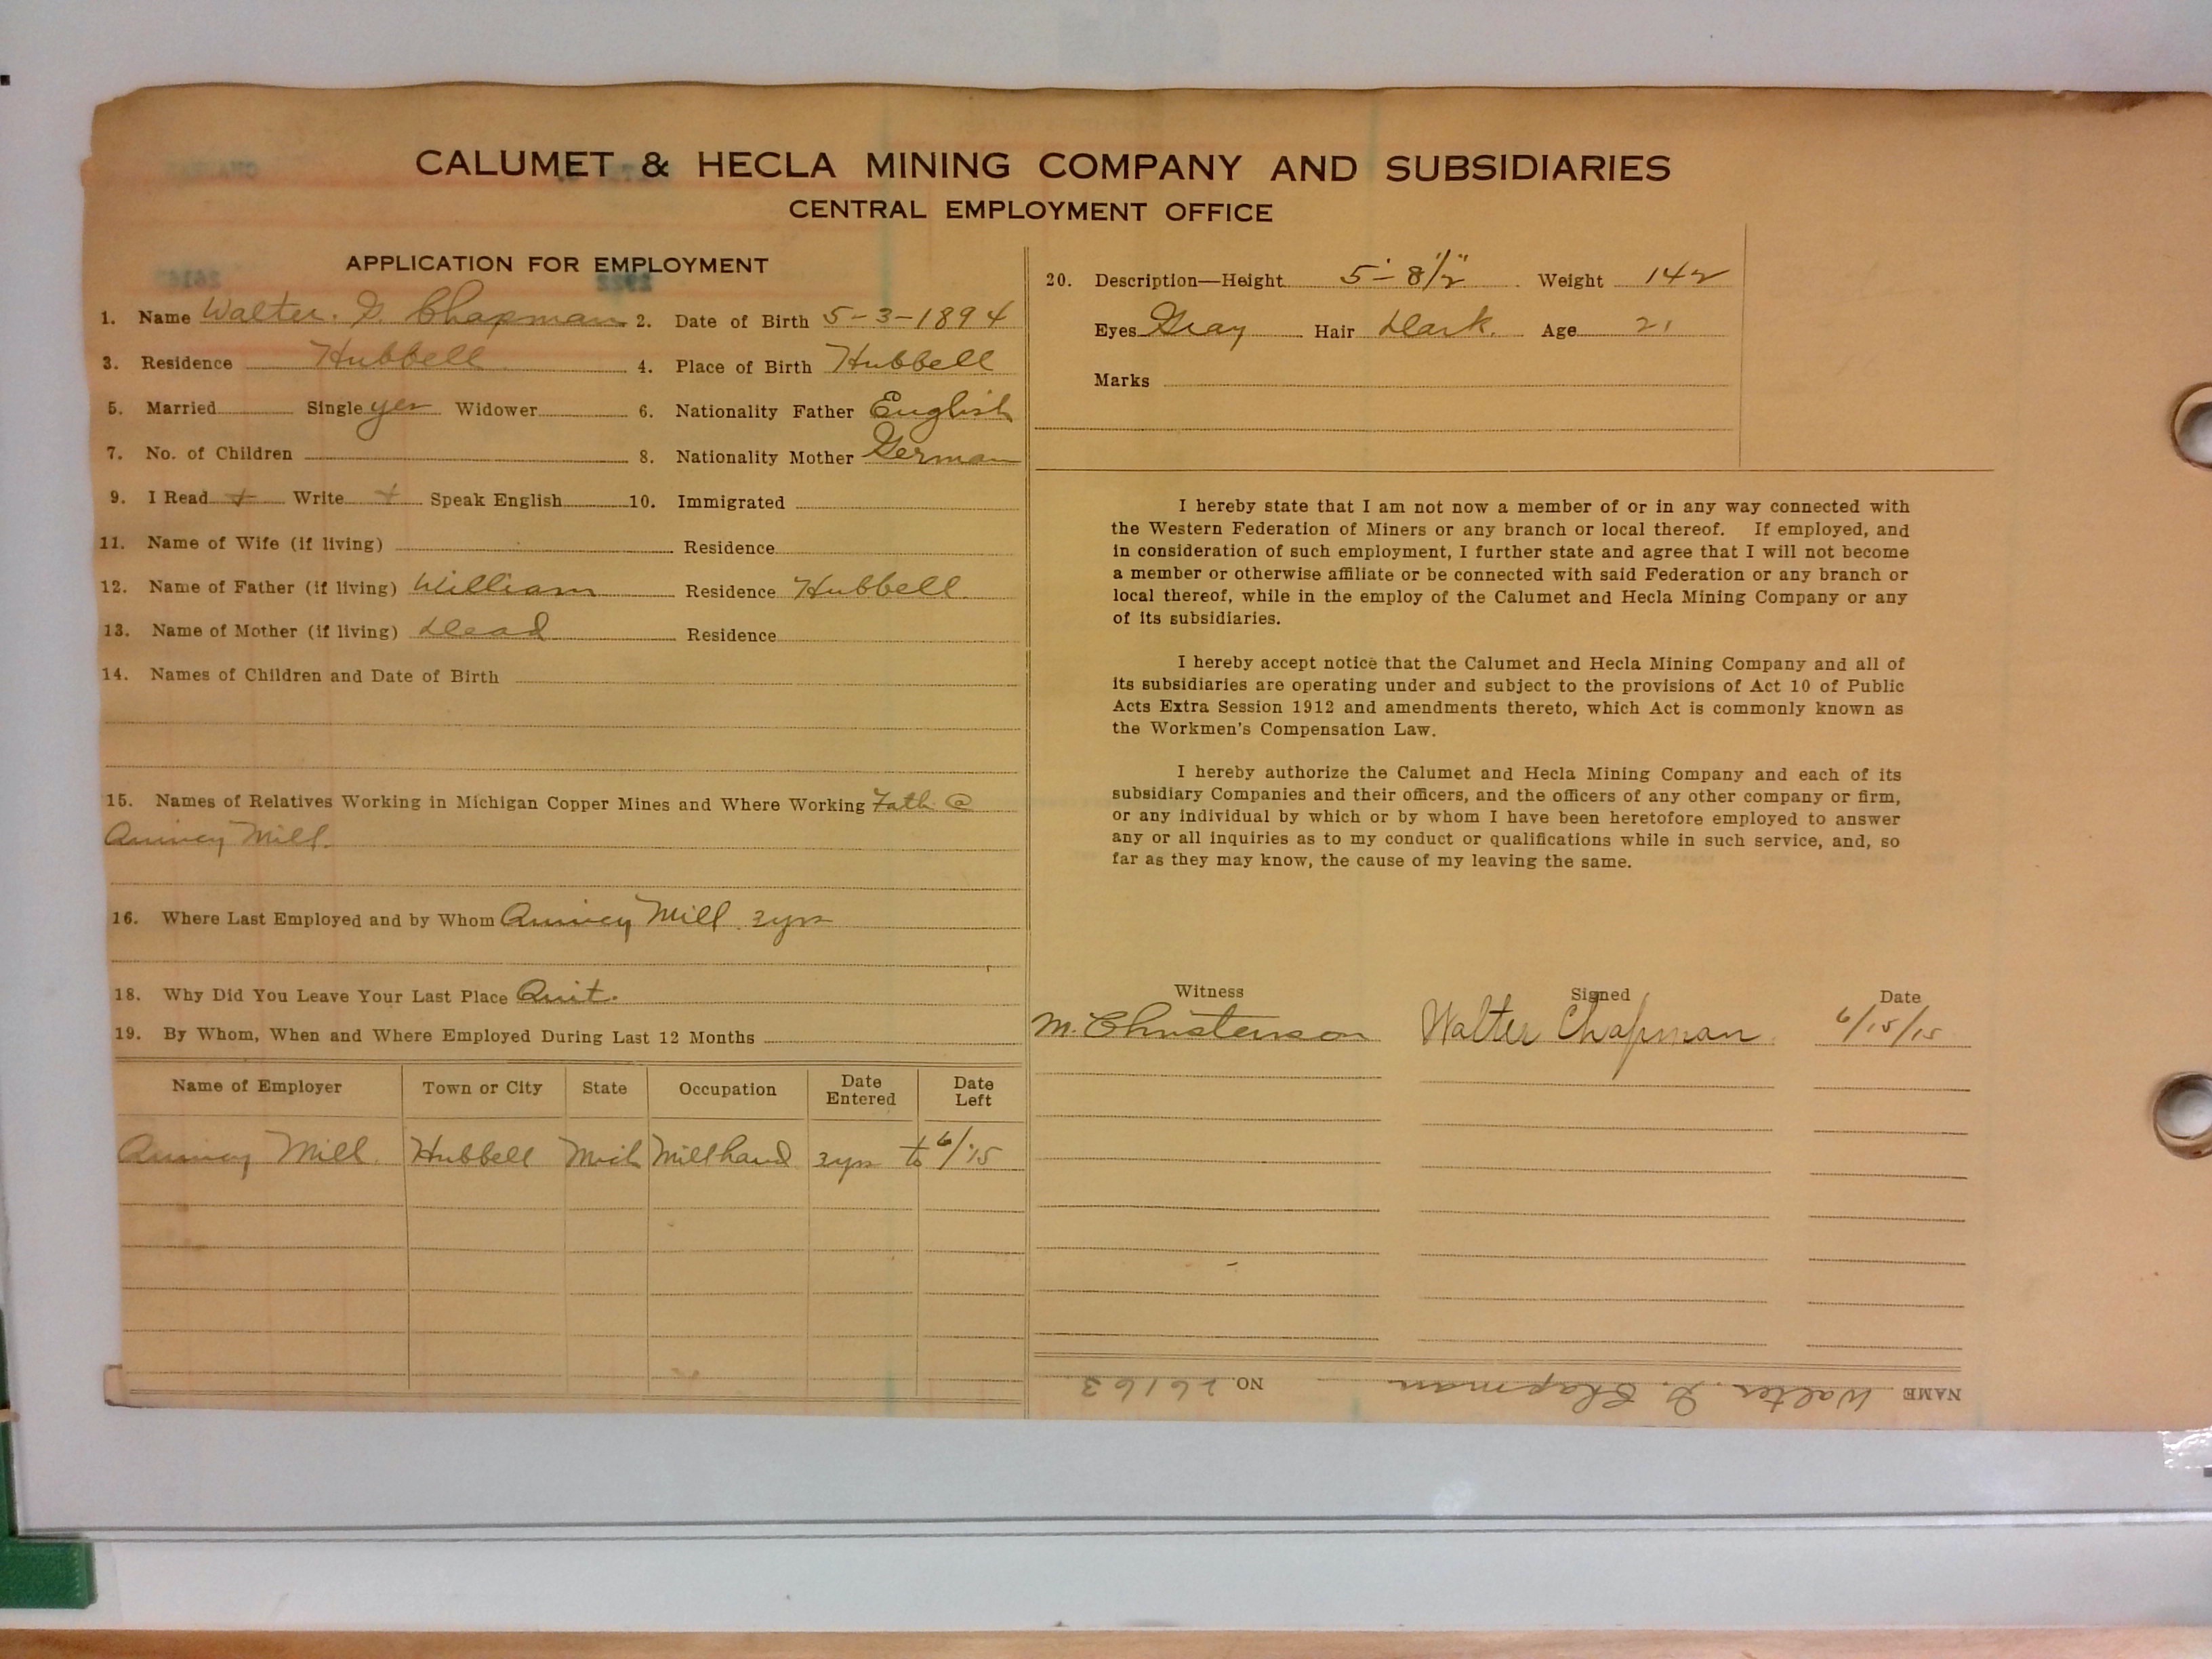 CALUMET & HECLA MINING COMPANY AND SUBSIDIARIES
CENTRAL EMPLOYMENT OFFICE
APPLICATION FOR EMPLOYMENT
1. Name Walter. G. Chapman 2. Date of Birth 5-3-1894
3. Residence Hubbell 4. Place of Birth Hubbell
5. Married Single yes Widower 6. Nationality Father English
7. No. of Children 8. Nationality Mother German
9. I Read + Write + Speak English 10. Immigrated
11. Name of Wife (if living) Residence
12. Name of Father (if living) William Residence Hubbell
13. Name of Mother (if living) Dead Residence
14. Names of Children and Date of Birth
15. Names of Relatives Working in Michigan Copper Mines and Where Working Fath @
Quincy Mill.
16. Where Last Employed and by Whom Quincy Mill. 3yrs
18. Why Did You Leave Your Last Place Quit.
19. By Whom, When and Where Employed During Last 12 Months
Name of Employer Town or City State Occupation Date Entered Date Left
Quincy Mill. Hubbell Mich Millhand 3yrs to 6/15
20. Description—Height 5'-8 1/2" Weight 142
Eyes Gray Hair Dark. Age 21
Marks
I hereby state that I am not now a member of or in any way connected with
the Western Federation of Miners or any branch or local thereof. If employed, and
in consideration of such employment, I further state and agree that I will not become
a member or otherwise affiliate or be connected with said Federation or any branch or
local thereof, while in the employ of the Calumet and Hecla Mining Company or any
of its subsidiaries.
I hereby accept notice that the Calumet and Hecla Mining Company and all of
its subsidiaries are operating under and subject to the provisions of Act 10 of Public
Acts Extra Session 1912 and amendments thereto, which Act is commonly known as
the Workmen's Compensation Law.
I hereby authorize the Calumet and Hecla Mining Company and each of its
subsidiary Companies and their officers, and the officers of any other company or firm,
or any individual by which or by whom I have been heretofore employed to answer
any or all inquiries as to my conduct or qualifications while in such service, and, so
far as they may know, the cause of my leaving the same.
Witness Signed Date
M. Christenson Walter Chapman. 6/15/15
NAME Walter. G. Chapman NO. 26163